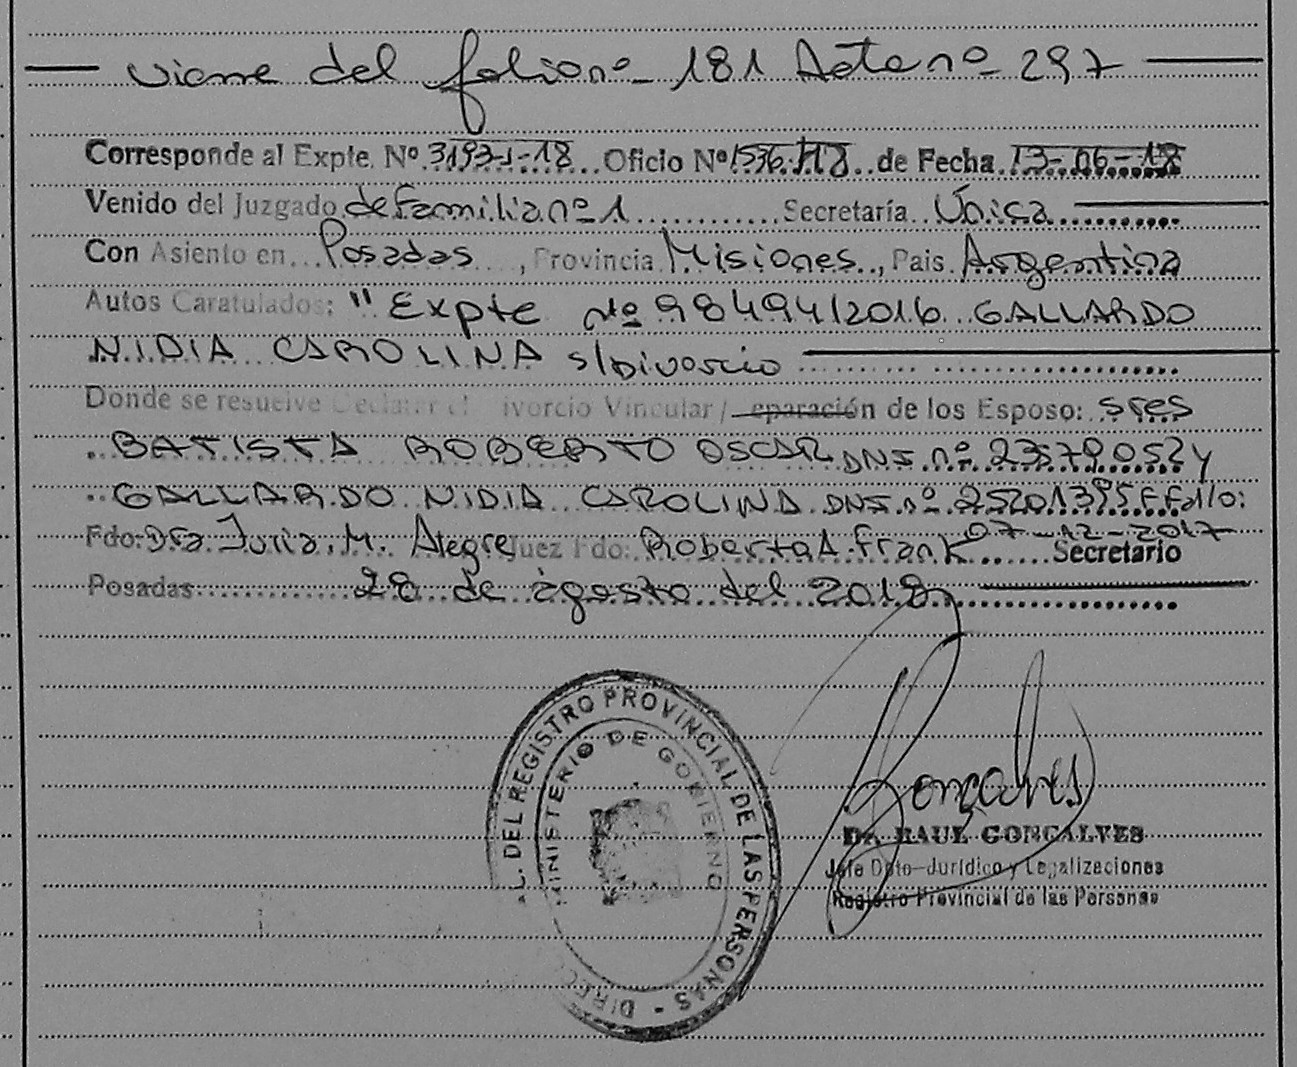 Viene del folio nº 181 Acta nº 297
Corresponde al Expte. Nº 3193-J-18 Oficio Nº 1536/18 de Fecha 13-06-18
Venido del Juzgado de Familia nº 1 Secretaría Única
Con Asiento en Posadas, Provincia Misiones, Pais Argentina
Autos Caratulados: "Expte nº 98494/2016 GALLARDO
NIDIA CAROLINA s/Divorcio
Donde se resuelve Declarar el ivorcio Vincular / eparación de los Esposo: sres
BATISTA ROBERTO OSCAR DNI nº 23579052 y
GALLARDO NIDIA CAROLINA DNI nº 25201395 F.Fallo:
07-12-2017
Fdo: Dra Julia M. Alegre Juez Fdo: Roberta A. Frank Secretario
Posadas 28 de agosto del 2018
DIREC AL. DEL REGISTRO PROVINCIAL DE LAS PERSONAS -
MINISTERIO DE GOBIERNO
Gonçalves
Dr. RAUL GONCALVES
Jefe Dpto-Jurídico y Legalizaciones
Registro Provincial de las Personas